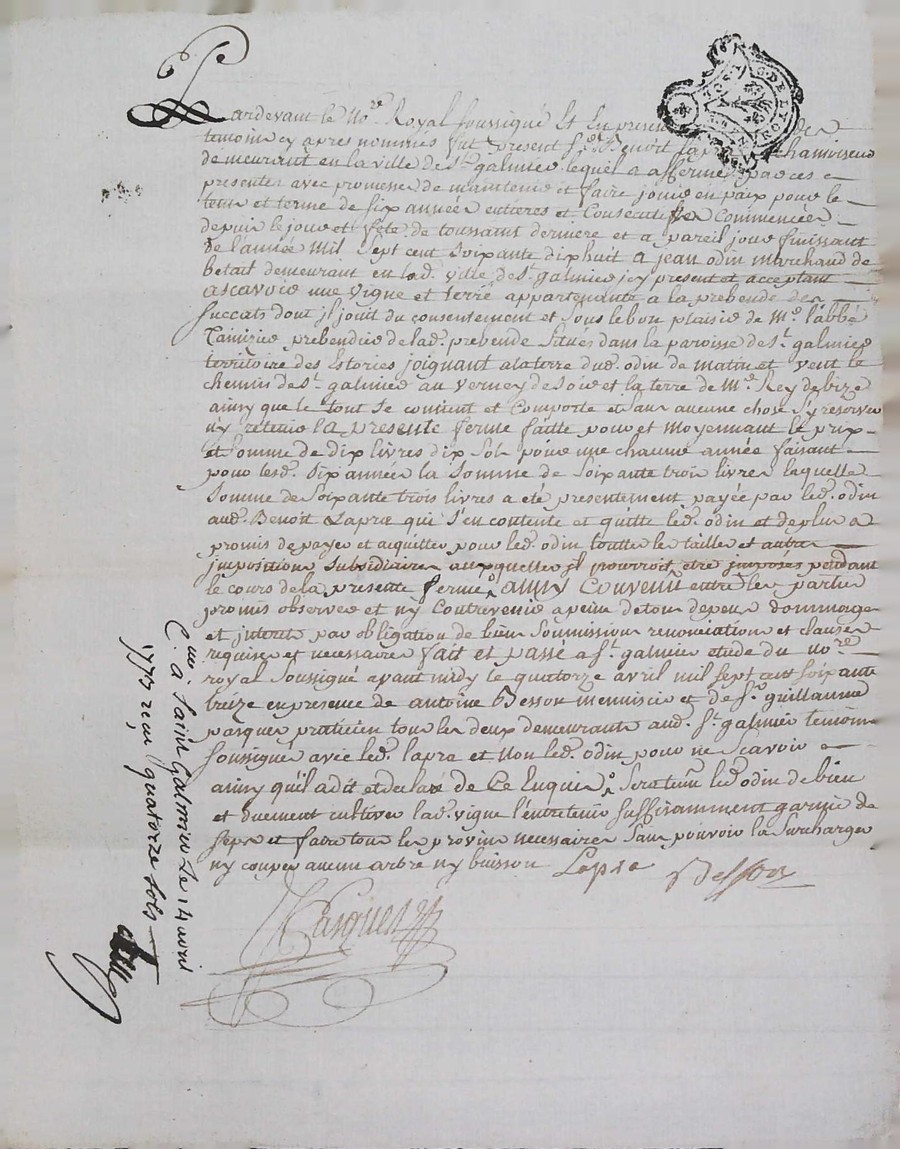 Pardevant le No.re Royal soussigné Et En presence des
temoins cy apres nommés fut present s.r Benoit Lapra chamoiseur
demeurant en la ville de s.t galmier lequel a affermé par ces
presentes avec promesse de maintenir et faire jouir en paix pour le
tems et terme de six années entieres et Consecutifves Commencées
depuis le jour et fete de toussaint derniere et a pareil jour finissant
de l'année Mil sept cent soixante dixhuit a jean odin Marchand de
betail demeurant en lad. ville de s.t galmier icy present et acceptant
ascavoir une vigne et terre appartenante a la prebende des
succats dont jl jouit du consentement et sous le bon plaisir de M.r l'abbé
prebendier de lad. prebende situés dans la paroisse de s.t galmier
territoire des Estories joignant a la terre dud. odin de matin et vent le
chemin de s.t galmier au verney de soir et la terre de M.r Rey de bize
ainsy que le tout se contient et Comporte et sans aucune chose s'y reserver
n'y retenir la presente ferme faitte pour et moyennant le prix
et somme de dix livres dix sols pour une chacune année faisant
pour lesd. six années la somme de soixante trois livres laquelle
somme de soixante trois livres a été presentement payée par led. odin
aud. Benoit Lapra qui s'en contente et quitte led. odin et deplus a
promis de payer et acquitter pour led. odin touttes les tailles et autres
impositions subsidiaires auxquelles jl pourroit etre imposés pendant
le cours de la presente ferme, ainsy Convenu entre les parties
promis observer et n'y Contrevenir a peine de tous depens dommages
et interets par obligation de biens soumissions renonciations et clauses
requises et necessaires fait et passé a s.t galmier etude du no.re
royal soussigné avant midy le quatorze avril mil sept cent soixante
treize en presence de antoine Besson menuisier et de s.r guillaume
pasquer praticien tous les deux demeurants aud. s.t galmier temoins
soussignes avec led. lapra et Non led. odin pour ne scavoir
ainsy qu'il a dit et declaré de Ce Enquis, sera tenu led. odin de bien
et duement cultiver lad. vigne l'entretenir suffisamment garnie de
seps et faire tous les provins necessaires sans pouvoir la surcharger
ny couper aucun arbre ny buisson Lapra Besson
Pasquer
C.lé a Saint Galmier le 14 avril
1773 reçu quatorze sols